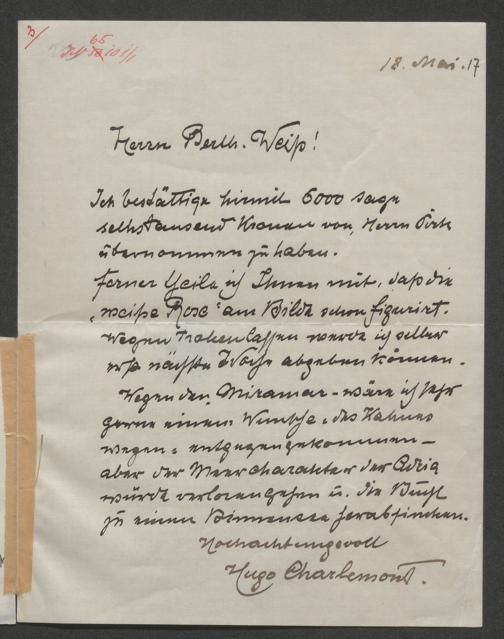 3/
65
101/1
18. Mai. 17
Herrn Berth. Weiß!
Ich bestättige hirmit 6000 sage
sechstausend Kronen von Herrn
übernommen zu haben.
Ferner theile ich Ihnen mit, daß die
„weiße Rose“ am Bilde schon figurirt.
Wegen werde ich selber
erst nächste Woche abgeben können.
Wegen dem Miramar – wäre ich sehr
gerne einem Wunsche – des Kahnes
wegen – entgegengekommen –
aber der Meercharakter der Adria
würde verlorengehen u. die Bucht
zu einem Binnensee herabsinken.
Hochachtungsvoll
Hugo Charlemont.